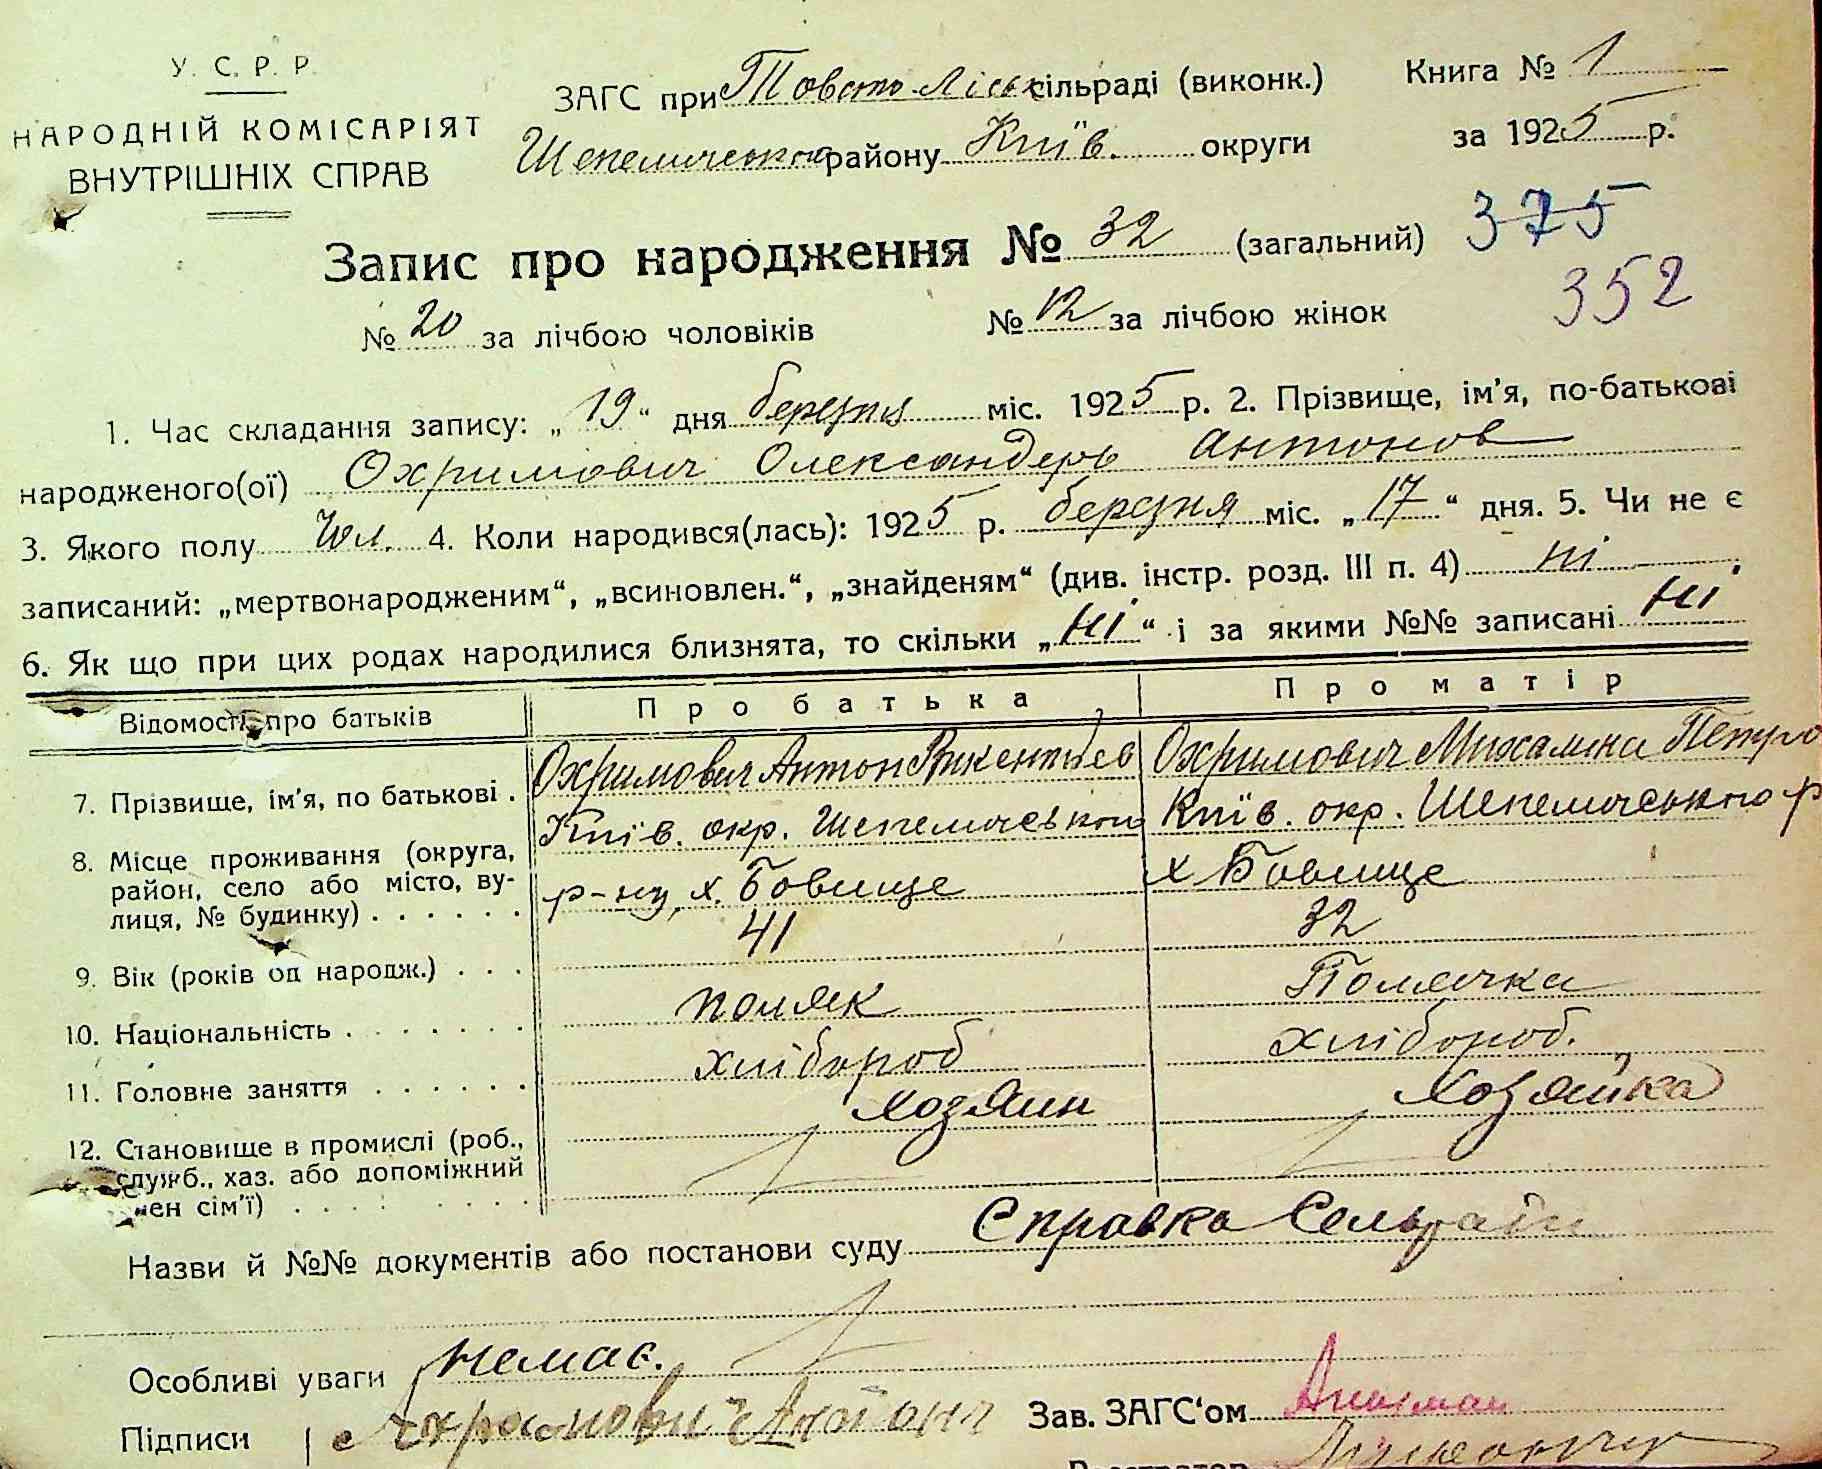 У. С. Р. Р.
НАРОДНІЙ КОМІСАРІЯТ
ВНУТРІШНІХ СПРАВ
ЗАГС при Товсто-Ліськ сільраді (виконк.) Книга № 1
Шепелическоо району Київ. округи за 1925 р.
Запис про народження № 32 (загальний) 375
352
№ 20 за лічбою чоловіків № 12 за лічбою жінок
1. Час складання запису: „19“ дня березня міс. 1925 р. 2. Прізвище, ім'я, по-батькові
народженого(ої) Охримович Олександерь Антонов
3. Якого полу Чол. 4. Коли народився(лась): 1925 р. березня міс. „17“ дня. 5. Чи не є
записаний: „мертвонародженим“, „всиновлен.“, „знайденям“ (див. інстр. розд. III п. 4) ні
6. Як що при цих родах народилися близнята, то скільки „ні“ і за якими №№ записані ні
Відомості про батьків Про батька Про матір
7. Прізвище, ім'я, по батькові . Охримович Антон Викентіев Охримович Михалина Петро
8. Місце проживання (округа, район, село або місто, вулиця, № будинку) . . . . . . Київ. окр. Шепелическоо р-ну, х. Бовище Київ. окр. Шепелическоо р х Бовище
9. Вік (років од народж.) . . . 41 32
10. Національність . . . . . . . поляк Полячка
11. Головне заняття . . . . . . хлібороб хлібороб.
12. Становище в промислі (роб., служб., хаз. або допоміжний член сім'ї) . . . . . . . Хозяин Хозяйка
Назви й №№ документів або постанови суду Справка Сельради
Особливі уваги немає.
Підписи Зав. ЗАГС'ом